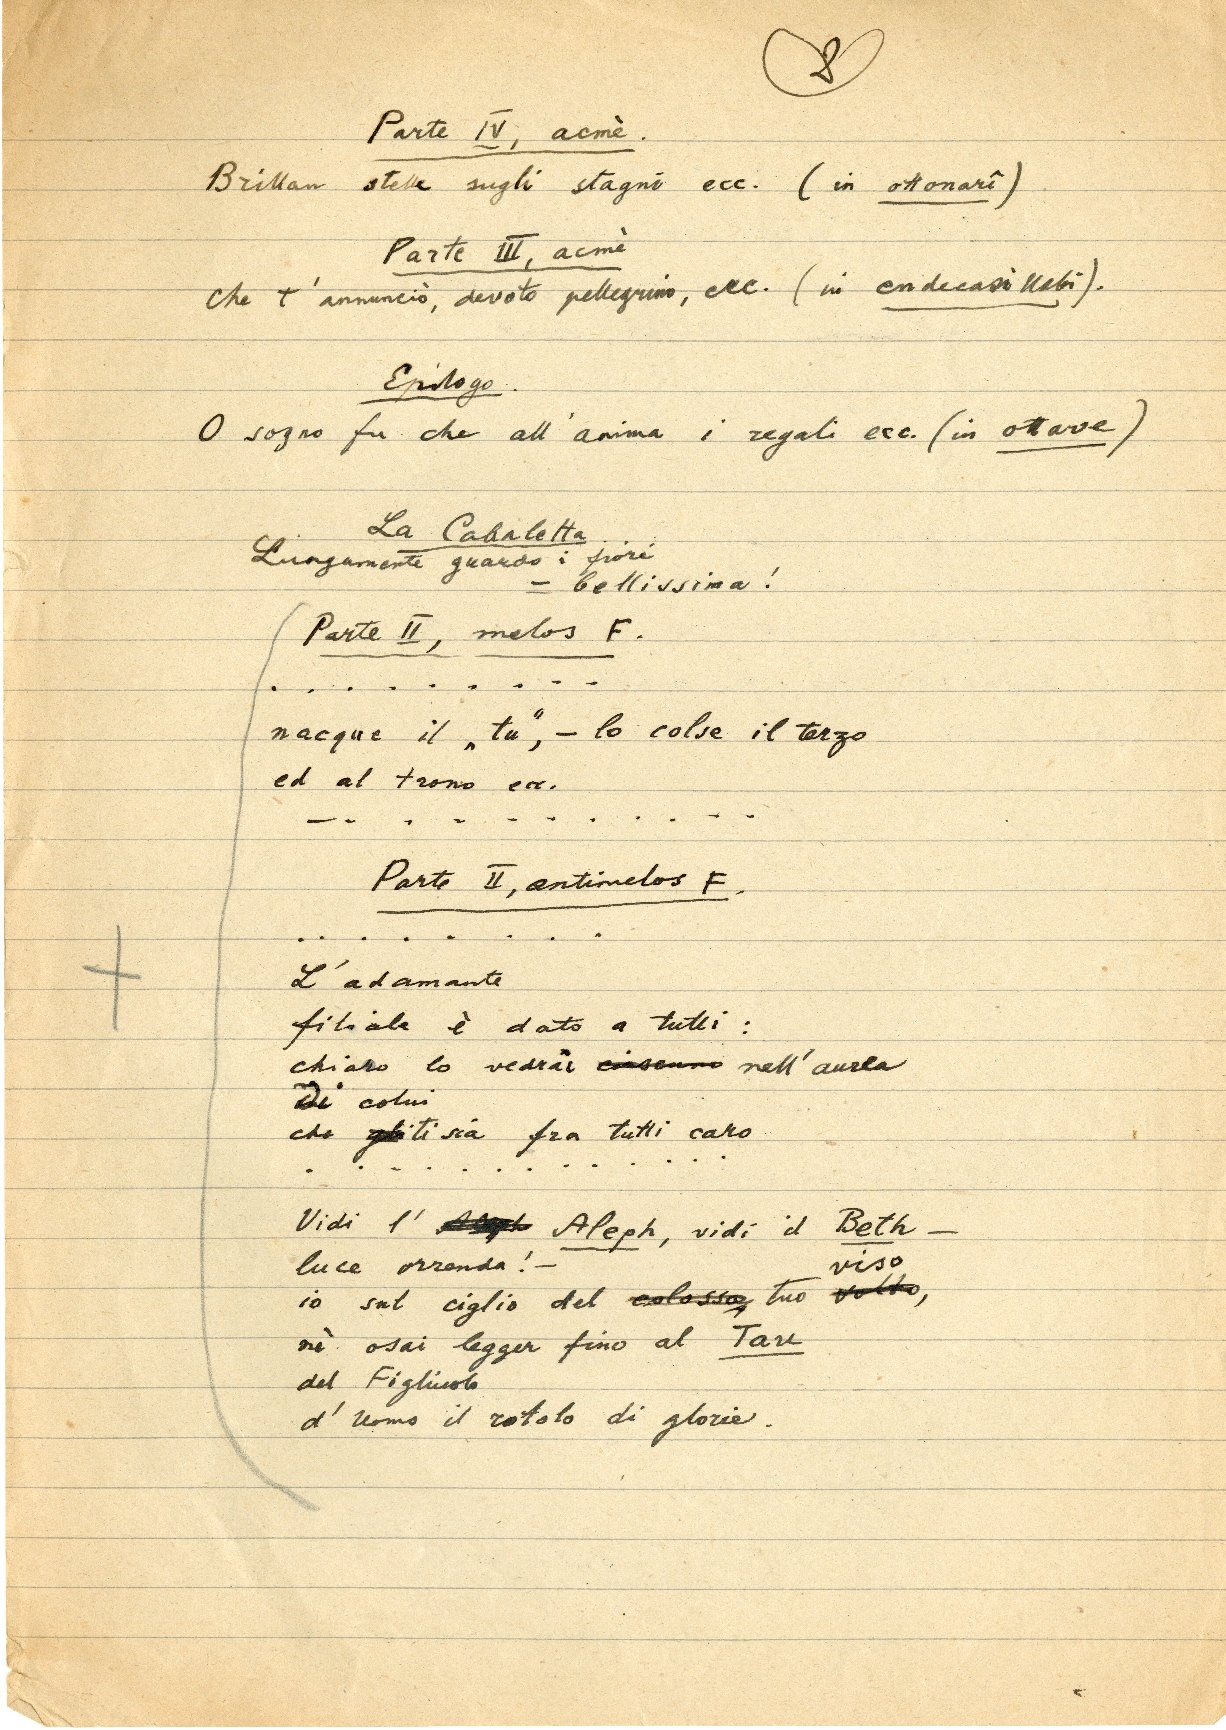 8
Parte IV, acmè.
Brillan stelle sugli stagni ecc. (in ottonari)
Parte III, acmè
che t'annunciò, devoto pellegrino, ecc. (in endecasillabi).
Epilogo.
O sogno fu che all'anima i regali ecc. (in ottave)
La Cabaletta
Lungamente guardo i fiori
– bellissima!
Parte II, melos F.
. . . . . . . . .
nacque il „tu", – lo colse il terzo
ed al trono ecc.
– . . . . . . . . . .
Parte II, antimelos F.
. . . . . . . .
L'adamante
filiale è dato a tutti:
chiaro lo vedrai ciascuno nell'aurea
Di colui
che ti sia fra tutti caro
. . . . . . . . . . . .
Vidi l' Aleph Aleph, vidi il Beth –
luce orrenda! –
viso
io sul ciglio del colosso, tuo volto,
nè osai legger fino al Tav
del Figliuolo
d'Uomo il rotolo di glorie.
+